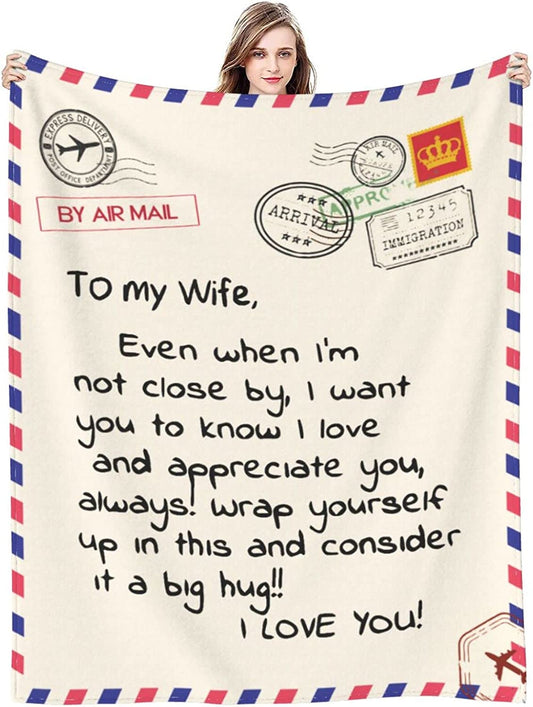 EXPRESS DELIVERY
POST OFFICE DEPARTMENT
AIR MAIL
BY AIR MAIL
ARRIVAL
12345
IMMIGRATION
To my Wife,
Even when I'm
not close by, I want
you to know I love
and appreciate you,
always! wrap yourself
up in this and consider
it a big hug!!
I LOVE YOU!